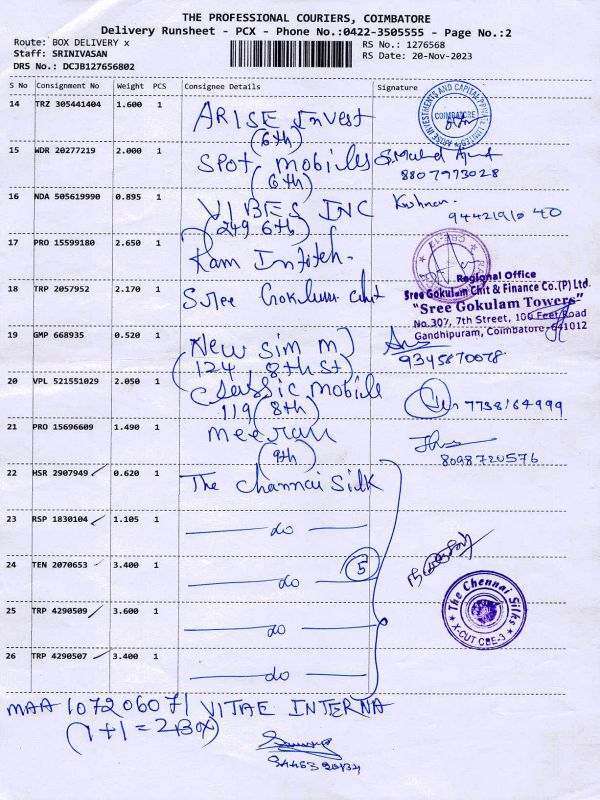 THE PROFESSIONAL COURIERS, COIMBATORE
Delivery Runsheet - PCX - Phone No.:0422-3505555 - Page No.:2
Route: BOX DELIVERY x RS No.: 1276568
Staff: SRINIVASAN RS Date: 20-Nov-2023
DRS No.: DCJB127656802
S No Consignment No Weight PCS Consignee Details Signature
14 TRZ 305441404 1.600 1 ARISE Invest
(6th)
COIMBATORE
15 WDR 20277219 2.000 1 Spot mobiles
(6th)
8807973028
16 NDA 505619990 0.895 1 VIBES INC
(249 6th)
17 PRO 15599180 2.650 1 Ram Infoteh.
18 TRP 2057952 2.170 1 Sree Gokulum chit
Regional Office
Sree Gokulam Chit & Finance Co.(P) Ltd.
"Sree Gokulam Towers"
No.307, 7th Street, 100 Feet Road
Gandhipuram, Coimbatore-641012
19 GMP 668935 0.520 1 New Sim m
(124 8th St)
20 VPL 521551029 2.050 1 classic mobile
119 (8th)
21 PRO 15696609 1.490 1 meeran
(9th)
8098720576
22 HSR 2907949 0.620 1 The Channai Silk
23 RSP 1830104 1.105 1 do
24 TEN 2070653 3.400 1 do 5
25 TRP 4290509 3.600 1 do
The Chennai Silks
X-CUT CBE-3
26 TRP 4290507 3.400 1 do
MAA 107206071 VITAE INTERNA
(1+1=2BOX)